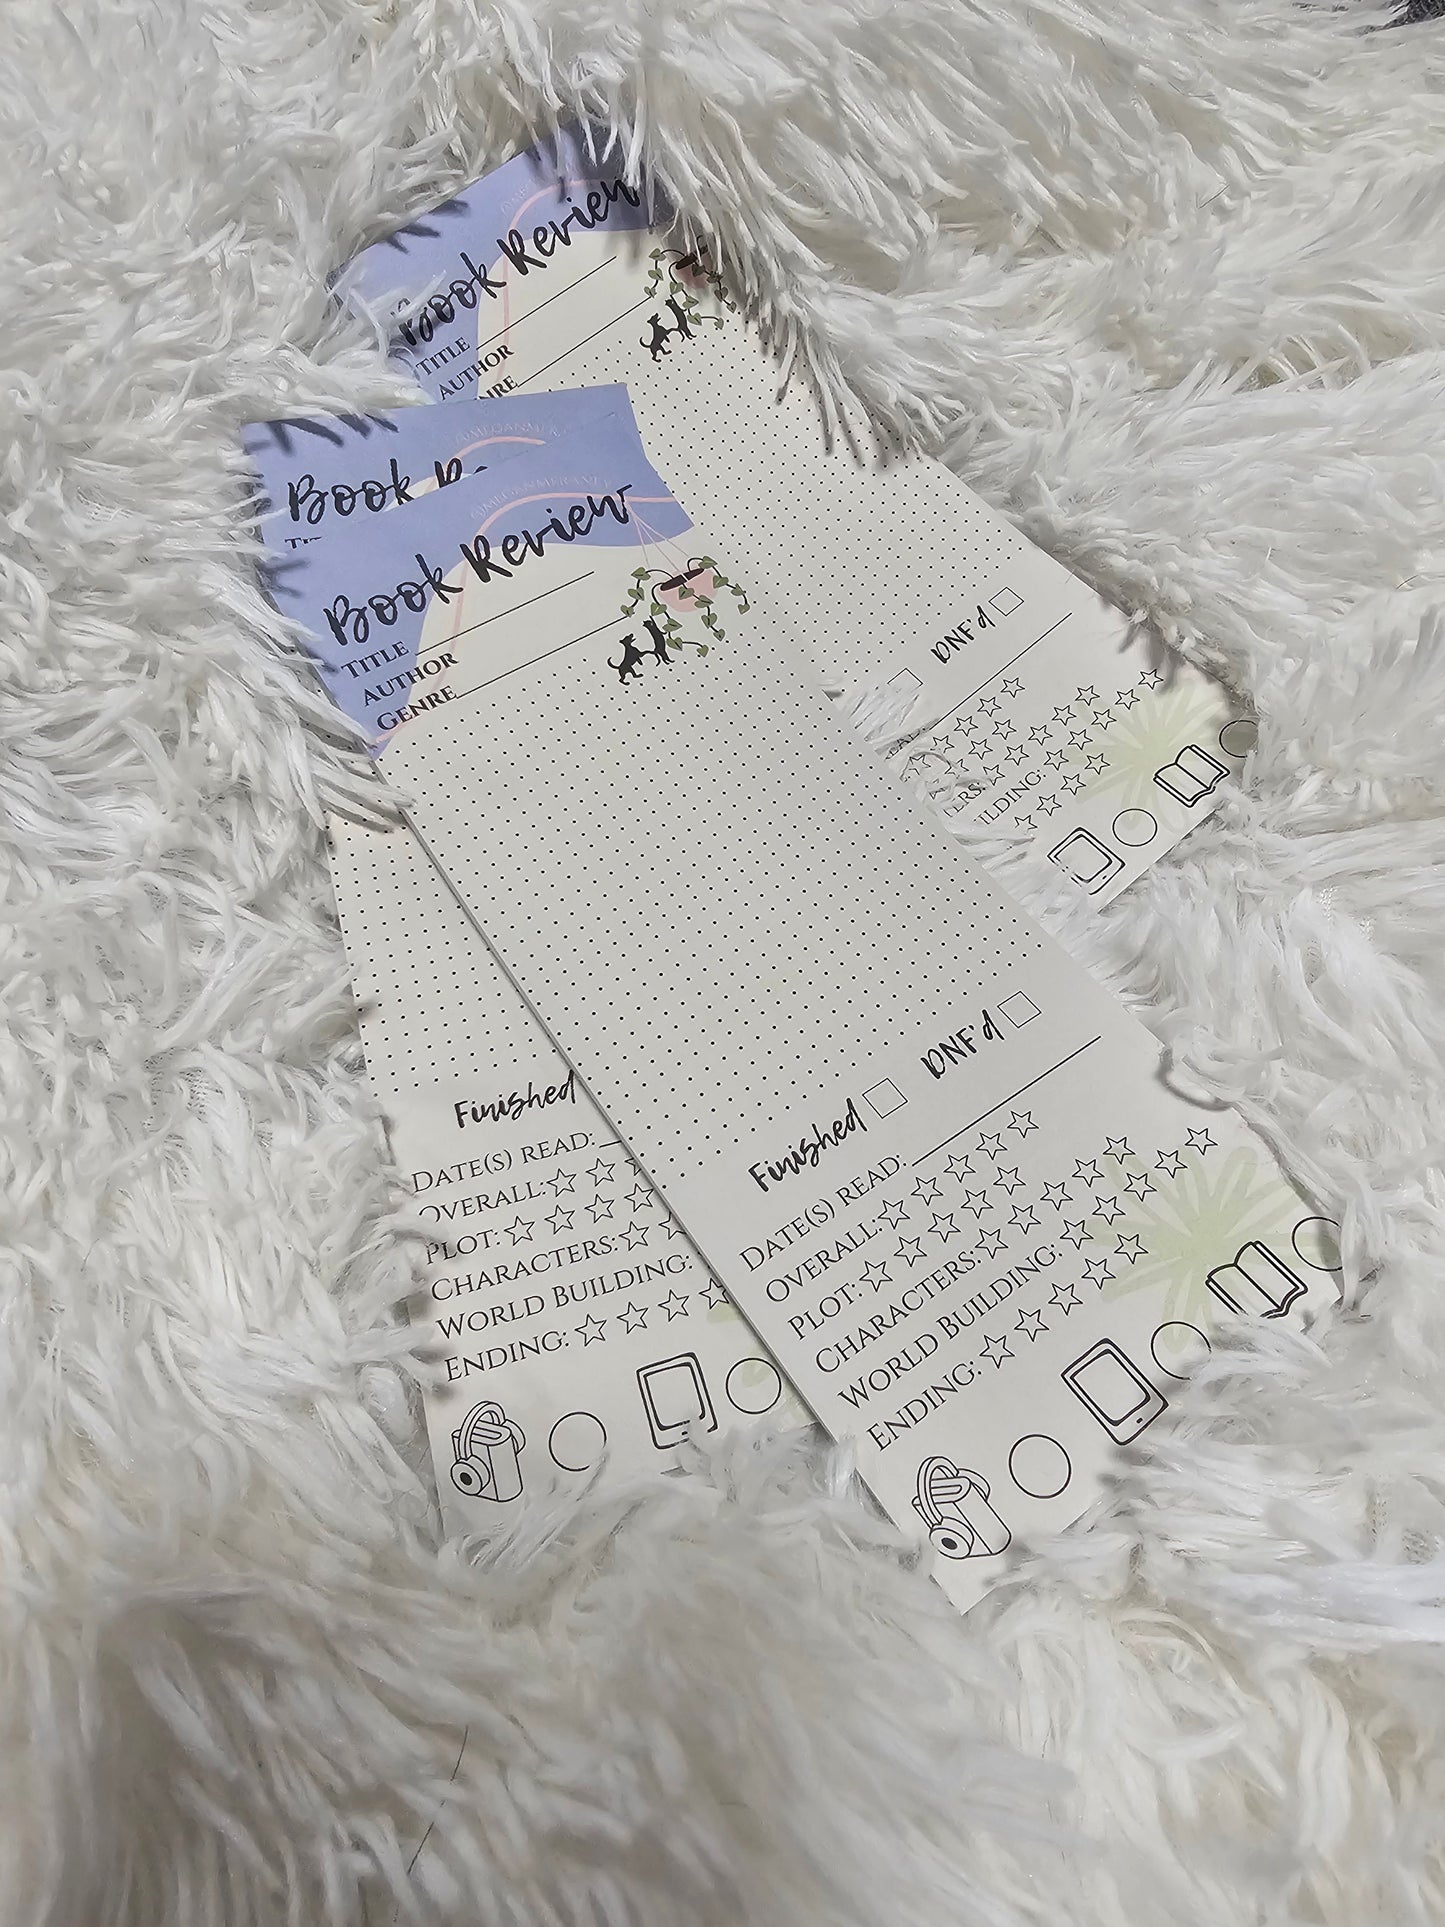 Book Review
TITLE
AUTHOR
Book
Book Review
TITLE
AUTHOR
GENRE
DNF'd
Finished
DNF'd
DATE(S) READ:
OVERALL:
PLOT:
CHARACTERS:
WORLD BUILDING:
ENDING:
Finished
DATE(S) READ:
OVERALL:
PLOT:
CHARACTERS:
WORLD BUILDING:
ENDING: